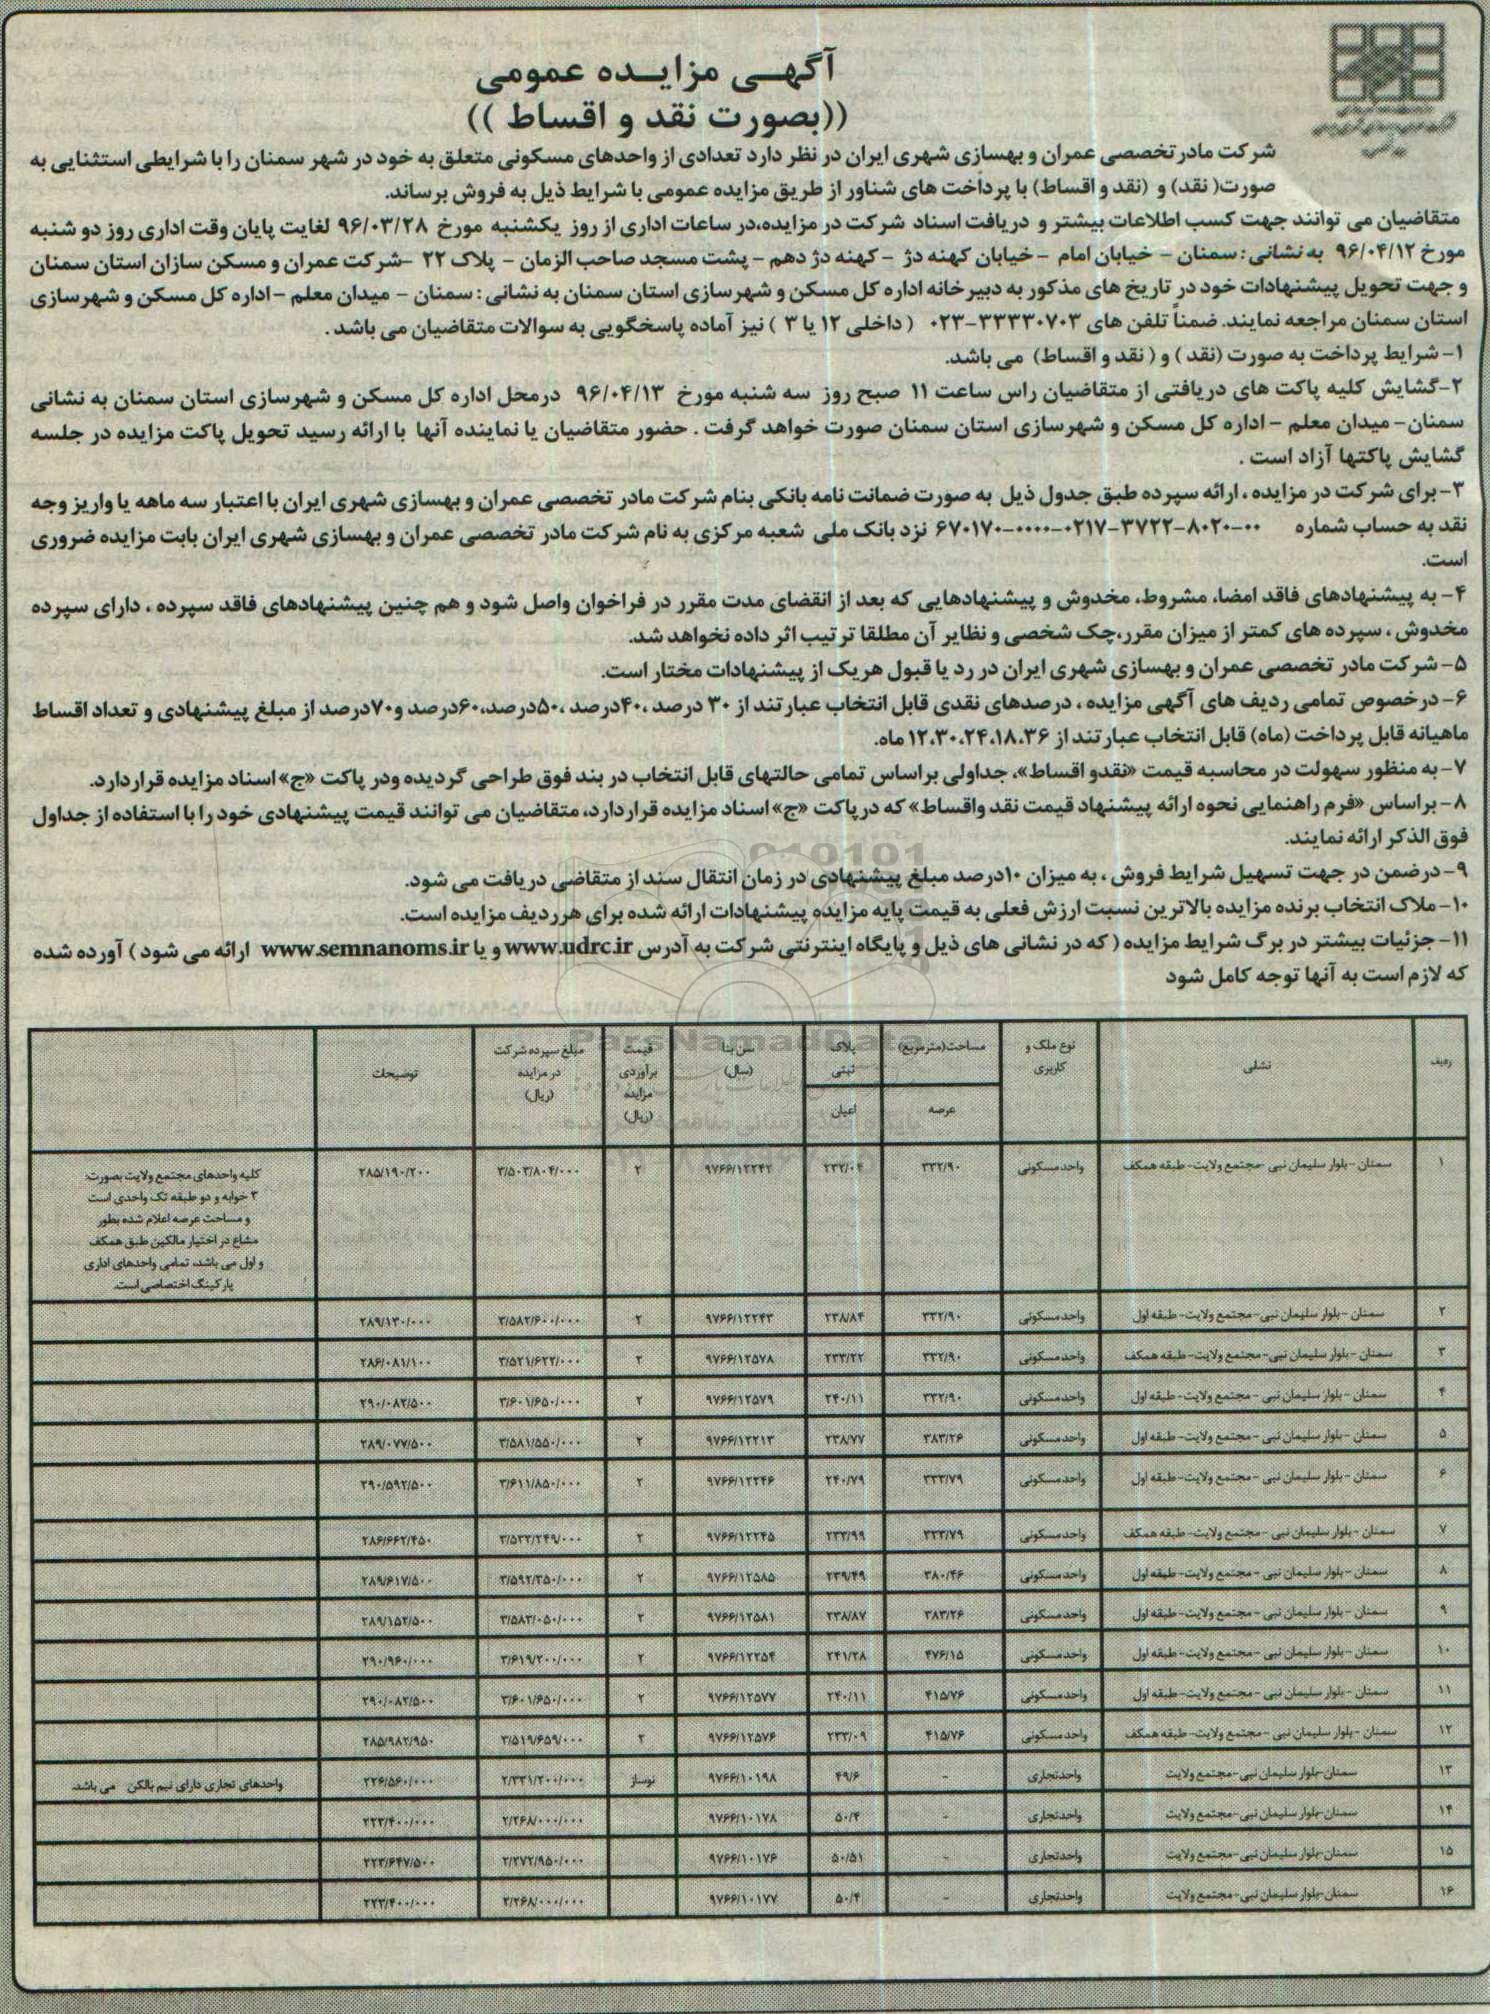 آگهی مزایده عمومی
((بصورت نقد و اقساط ))
شرکت مادر تخصصی عمران و بهسازی شهری ایران در نظر دارد تعدادی از واحدهای مسکونی متعلق به خود در شهر سمنان را با شرایطی استثنایی به
صورت( نقد) و (نقد و اقساط) با پرداخت های شناور از طریق مزایده عمومی با شرایط ذیل به فروش برساند.
متقاضیان می توانند جهت کسب اطلاعات بیشتر و دریافت اسناد شرکت در مزایده،در ساعات اداری از روز یکشنبه مورخ ۹۶/۰۳/۲۸ لغایت پایان وقت اداری روز دو شنبه
مورخ ۹۶/۰۴/۱۲ به نشانی : سمنان - خیابان امام - خیابان کهنه دژ - کهنه دژ دهم - پشت مسجد صاحب الزمان - پلاک ۲۲ -شرکت عمران و مسکن سازان استان سمنان
و جهت تحویل پیشنهادات خود در تاریخ های مذکور به دبیرخانه اداره کل مسکن و شهرسازی استان سمنان به نشانی : سمنان - میدان معلم -اداره کل مسکن و شهرسازی
استان سمنان مراجعه نمایند. ضمناً تلفن های ۳۳۳۳۰۷۰۳-۰۲۳ ( داخلی ۱۲ یا ۳ ) نیز آماده پاسخگویی به سوالات متقاضیان می باشد .
۱- شرایط پرداخت به صورت (نقد ) و ( نقد و اقساط) می باشد.
۲-گشایش کلیه پاکت های دریافتی از متقاضیان راس ساعت ۱۱ صبح روز سه شنبه مورخ ۹۶/۰۴/۱۳ درمحل اداره کل مسکن و شهرسازی استان سمنان به نشانی
سمنان- میدان معلم - اداره کل مسکن و شهرسازی استان سمنان صورت خواهد گرفت . حضور متقاضیان یا نماینده آنها با ارائه رسید تحویل پاکت مزایده در جلسه
گشایش پاکتها آزاد است .
۳-برای شرکت در مزایده ، ارائه سپرده طبق جدول ذیل به صورت ضمانت نامه بانکی بنام شرکت مادر تخصصی عمران و بهسازی شهری ایران با اعتبار سه ماهه یا واریز وجه
نقد به حساب شماره ۰۰-۸۰۲۰-۳۷۲۲-۰۲۱۷-۰۰۰۰-۶۷۰۱۷۰ نزد بانک ملی شعبه مرکزی به نام شرکت مادر تخصصی عمران و بهسازی شهری ایران بابت مزایده ضروری
است.
۴- به پیشنهادهای فاقد امضا، مشروط، مخدوش و پیشنهادهایی که بعد از انقضای مدت مقرر در فراخوان واصل شود و هم چنین پیشنهادهای فاقد سپرده ، دارای سپرده
مخدوش ، سپرده های کمتر از میزان مقرر،چک شخصی و نظایر آن مطلقا ترتیب اثر داده نخواهد شد.
۵- شرکت مادر تخصصی عمران و بهسازی شهری ایران در رد یا قبول هریک از پیشنهادات مختار است.
۶- درخصوص تمامی ردیف های آگهی مزایده ، درصدهای نقدی قابل انتخاب عبارتند از ۳۰ درصد ،۴۰درصد ،۵۰درصد،۶۰درصد و۷۰درصد از مبلغ پیشنهادی و تعداد اقساط
ماهیانه قابل پرداخت (ماه) قابل انتخاب عبارتند از ۱۲،۳۰،۲۴،۱۸،۳۶ ماه.
۷- به منظور سهولت در محاسبه قیمت «نقدو اقساط»، جداولی براساس تمامی حالتهای قابل انتخاب در بند فوق طراحی گردیده ودر پاکت «ج» اسناد مزایده قراردارد.
۸- براساس «فرم راهنمایی نحوه ارائه پیشنهاد قیمت نقد واقساط» که درپاکت «ج» اسناد مزایده قراردارد، متقاضیان می توانند قیمت پیشنهادی خود را با استفاده از جداول
فوق الذکر ارائه نمایند.
۹- درضمن در جهت تسهیل شرایط فروش ، به میزان ۱۰درصد مبلغ پیشنهادی در زمان انتقال سند از متقاضی دریافت می شود.
۱۰- ملاک انتخاب برنده مزایده بالاترین نسبت ارزش فعلی به قیمت پایه مزایده پیشنهادات ارائه شده برای هرردیف مزایده است.
۱۱- جزئیات بیشتر در برگ شرایط مزایده ( که در نشانی های ذیل و پایگاه اینترنتی شرکت به آدرس www.udrc.ir و یا www.semnanoms.ir ارائه می شود ) آورده شده
که لازم است به آنها توجه کامل شود
ParsNamadData
ردیف نشانی نوع ملک و کاربری مساحت(مترمربع) عرصه پلاک ثبتی اعیان سن بنا (سال) قیمت برآوردی مزایده (ریال) مبلغ سپرده شرکت در مزایده (ریال) توضیحات
۱ سمنان -بلوار سلیمان نبی -مجتمع ولایت- طبقه همکف واحد مسکونی ۳۳۲/۹۰ ۲۳۲/۰۴ ۹۷۶۶/۱۲۲۴۲ ۲ ۳/۵۰۳/۸۰۴/۰۰۰ ۲۸۵/۱۹۰/۲۰۰
کلیه واحدهای مجتمع ولایت بصورت:
۳ خوابه و دو طبقه تک واحدی است
و مساحت عرصه اعلام شده بطور
مشاع در اختیار مالکین طبق همکف
و اول می باشد، تمامی واحدهای اداری
پارکینگ اختصاصی است.
۲ سمنان -بلوار سلیمان نبی -مجتمع ولایت- طبقه اول واحد مسکونی ۳۳۲/۹۰ ۲۳۸/۸۴ ۹۷۶۶/۱۲۲۴۳ ۲ ۳/۵۸۲/۶۰۰/۰۰۰ ۲۸۹/۱۳۰/۰۰۰
۳ سمنان -بلوار سلیمان نبی- مجتمع ولایت- طبقه همکف واحد مسکونی ۳۳۲/۹۰ ۲۳۳/۲۲ ۹۷۶۶/۱۲۵۷۸ ۲ ۳/۵۲۱/۶۲۲/۰۰۰ ۲۸۶/۰۸۱/۱۰۰
۴ سمنان -بلوار سلیمان نبی - مجتمع ولایت- طبقه اول واحد مسکونی ۳۳۲/۹۰ ۲۴۰/۱۱ ۹۷۶۶/۱۲۵۷۹ ۲ ۳/۶۰۱/۶۵۰/۰۰۰ ۲۹۰/۰۸۲/۵۰۰
۵ سمنان -بلوار سلیمان نبی - مجتمع ولایت- طبقه اول واحد مسکونی ۳۸۳/۲۶ ۲۳۸/۷۷ ۹۷۶۶/۱۲۲۱۳ ۲ ۳/۵۸۱/۵۵۰/۰۰۰ ۲۸۹/۰۷۷/۵۰۰
۶ سمنان -بلوار سلیمان نبی -مجتمع ولایت- طبقه اول واحد مسکونی ۳۳۳/۷۹ ۲۴۰/۷۹ ۹۷۶۶/۱۲۲۴۶ ۲ ۳/۶۱۱/۸۵۰/۰۰۰ ۲۹۰/۵۹۲/۵۰۰
۷ سمنان -بلوار سلیمان نبی -مجتمع ولایت- طبقه همکف واحد مسکونی ۳۳۳/۷۹ ۲۳۳/۹۹ ۹۷۶۶/۱۲۲۴۵ ۲ ۳/۵۳۳/۲۴۹/۰۰۰ ۲۸۶/۶۶۲/۴۵۰
۸ سمنان -بلوار سلیمان نبی -مجتمع ولایت- طبقه اول واحد مسکونی ۳۸۰/۴۶ ۲۳۹/۴۹ ۹۷۶۶/۱۲۵۸۵ ۲ ۳/۵۹۲/۳۵۰/۰۰۰ ۲۸۹/۶۱۷/۵۰۰
۹ سمنان -بلوار سلیمان نبی -مجتمع ولایت- طبقه اول واحد مسکونی ۳۸۳/۲۶ ۲۳۸/۸۷ ۹۷۶۶/۱۲۵۸۱ ۲ ۳/۵۸۳/۰۵۰/۰۰۰ ۲۸۹/۱۵۲/۵۰۰
۱۰ سمنان -بلوار سلیمان نبی -مجتمع ولایت- طبقه اول واحد مسکونی ۴۷۶/۱۵ ۲۴۱/۲۸ ۹۷۶۶/۱۲۲۵۴ ۲ ۳/۶۱۹/۲۰۰/۰۰۰ ۲۹۰/۹۶۰/۰۰۰
۱۱ سمنان -بلوار سلیمان نبی -مجتمع ولایت- طبقه اول واحد مسکونی ۴۱۵/۷۶ ۲۴۰/۱۱ ۹۷۶۶/۱۲۵۷۷ ۲ ۳/۶۰۱/۶۵۰/۰۰۰ ۲۹۰/۰۸۲/۵۰۰
۱۲ سمنان -بلوار سلیمان نبی -مجتمع ولایت- طبقه همکف واحد مسکونی ۴۱۵/۷۶ ۲۳۳/۰۹ ۹۷۶۶/۱۲۵۷۶ ۲ ۳/۵۱۹/۶۵۹/۰۰۰ ۲۸۵/۹۸۲/۹۵۰
۱۳ سمنان-بلوار سلیمان نبی-مجتمع ولایت واحدتجاری - ۴۹/۶ ۹۷۶۶/۱۰۱۹۸ نوساز ۲/۳۳۱/۲۰۰/۰۰۰ ۲۲۶/۵۶۰/۰۰۰ واحدهای تجاری دارای نیم بالکن می باشد.
۱۴ سمنان-بلوار سلیمان نبی-مجتمع ولایت واحدتجاری - ۵۰/۴ ۹۷۶۶/۱۰۱۷۸ ۲/۲۶۸/۰۰۰/۰۰۰ ۲۲۳/۴۰۰/۰۰۰
۱۵ سمنان-بلوار سلیمان نبی-مجتمع ولایت واحدتجاری - ۵۰/۵۱ ۹۷۶۶/۱۰۱۷۶ ۲/۲۷۲/۹۵۰/۰۰۰ ۲۲۳/۶۴۷/۵۰۰
۱۶ سمنان-بلوار سلیمان نبی-مجتمع ولایت واحدتجاری - ۵۰/۴ ۹۷۶۶/۱۰۱۷۷ ۲/۲۶۸/۰۰۰/۰۰۰ ۲۲۳/۴۰۰/۰۰۰